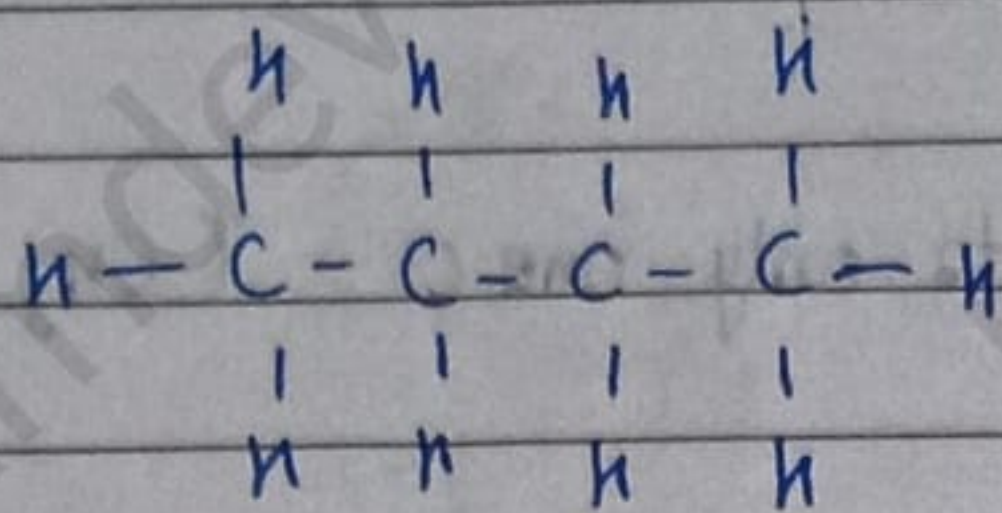 H H H H
| | | |
H — C - C - C - C — H
| | | |
H H H H